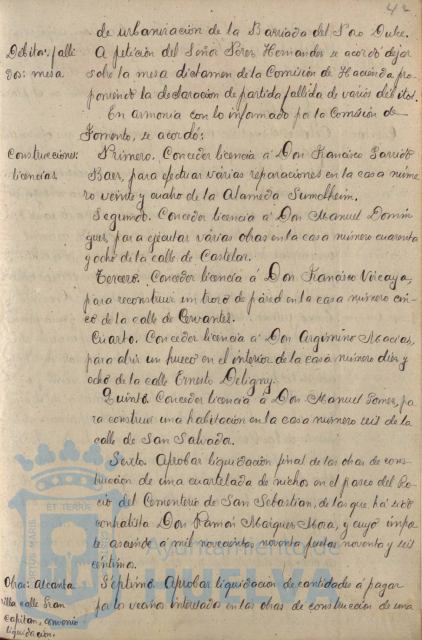 42
de urbanización de la Barriada del Pao Dulce.
Débitos falli
dos: mesa
A petición del Señor Pérez Hernández se acordó dejar
sobre la mesa dictamen de la Comisión de Hacienda pro
poniendo la declaración de partida fallida de varios débitos.
En armonía con lo informado por la Comisión de
Fomento, se acordó:
Construcciones:
licencias
Primero. Conceder licencia á Don Francisco Garrido
para efectuar várias reparaciones en la casa núme
ro veinte y cuatro de la Alameda Sundheim.
Segundo. Conceder licencia á Don Manuel Domín
guez, para ejecutar várias obras en la casa número cuarenta
y ocho de la calle de Castelar.
Tercero. Conceder licencia á Don Francisco Vizcaya,
para reconstruir un trozo de pared en la casa número cin
co de la calle de Cervantes.
Cuarto. Conceder licencia á Don Argimiro Macías,
para abrir un hueco en el interior de la casa número diez y
ocho de la calle Ernesto Deligny.
Quinto. Conceder licencia á Don Manuel pa
ra construir una habitación en la casa número seis de la
calle de San Salvador.
Sexto. Aprobar liquidación final de las obras de cons
trucción de una cuartelada de nichos en el paseo del Ro
cío del Cementerio de San Sebastian, de las que há sido
contratista Don Ramón Márquez Mora, y cuyo impor
te asciende á mil novecientas noventa pesetas noventa y seis
céntimos.
Obras: alcanta
rilla calle Gran
Capitan, convenio
liquidación.
Séptimo. Aprobar liquidacion de cantidades á pagar
por los vecinos interesados en las obras de construcción de una
ET TERRE
PORTUS MARIS
Ayuntamiento de
HUELVA